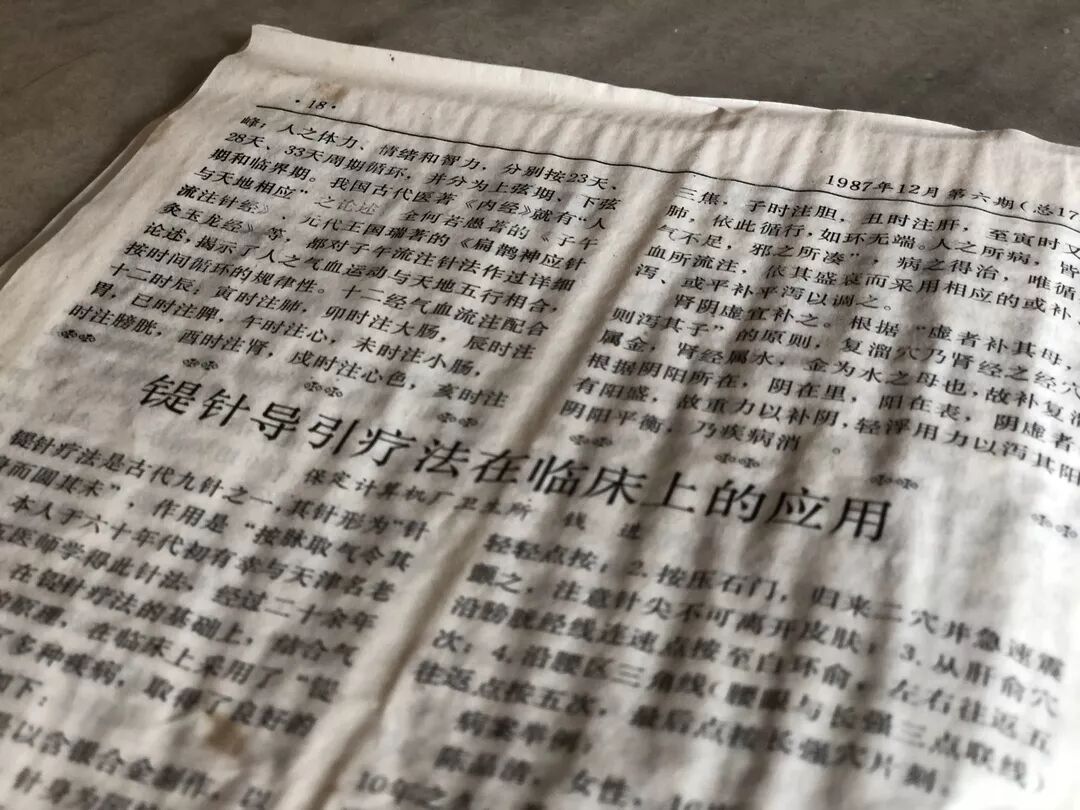 ·18·
1987年12月 第六期(总17
峰；人之体力、情绪和智力，分别按23天、
28天、33天周期循环，并分为上弦期、下弦
期和临界期。我国古代医著《内经》就有“人
与天地相应”之论述，金何若愚著的《子午
流注针经》、元代王国瑞著的《扁鹊神应针
灸玉龙经》等，都对子午流注针法作过详细
论述，揭示了人之气血运动与天地五行相合，
按时间循环的规律性。十二经气血流注配合
十二时辰，寅时注肺，卯时注大肠，辰时注
胃，巳时注脾，午时注心，未时注小肠，
时注膀胱，酉时注肾，戌时注心包，亥时注
三焦，子时注胆，丑时注肝，至寅时又
肺，依此循行，如环无端。人之所病，皆
气不足，邪之所凑”，病之得治，唯循
血所流注，依其盛衰而采用相应的或补
泻、或平补平泻以调之。
肾阴虚宜补之。根据“虚者补其母，
则泻其子”的原则，复溜穴乃肾经之经穴
属金，肾经属水，金为水之母也，故补复溜
根据阴阳所在，阴在里，阳在表，阴虚者
有阳盛，故重力以补阴，轻浮用力以泻其阳
阴阳平衡，乃疾病消。
鍉针导引疗法在临床上的应用
保定计算机厂卫生所 钱进
鍉针疗法是古代九针之一，其针形为“针
身而圆其末”，作用是“按脉取气令其
本人于六十年代初有幸与天津名老
医师学得此针法，经过二十余年
在鍉针疗法的基础上，结合气
原理，在临床上采用了“鍉
了多种疾病，取得了良好的
如下：
是以含银合金制作，以
针身为圆
轻轻点按；2.按压石门，归来二穴并急速震
颤之，注意针尖不可离开皮肤；3.从肝俞穴
沿膀胱经线连速点按至白环俞，左右往返五
次；4.沿腰区三角线(腰眼与长强三点联线)
往返点按五次，最后点按长强穴片刻。
病案举例：
陈 清，女性，16
10年之